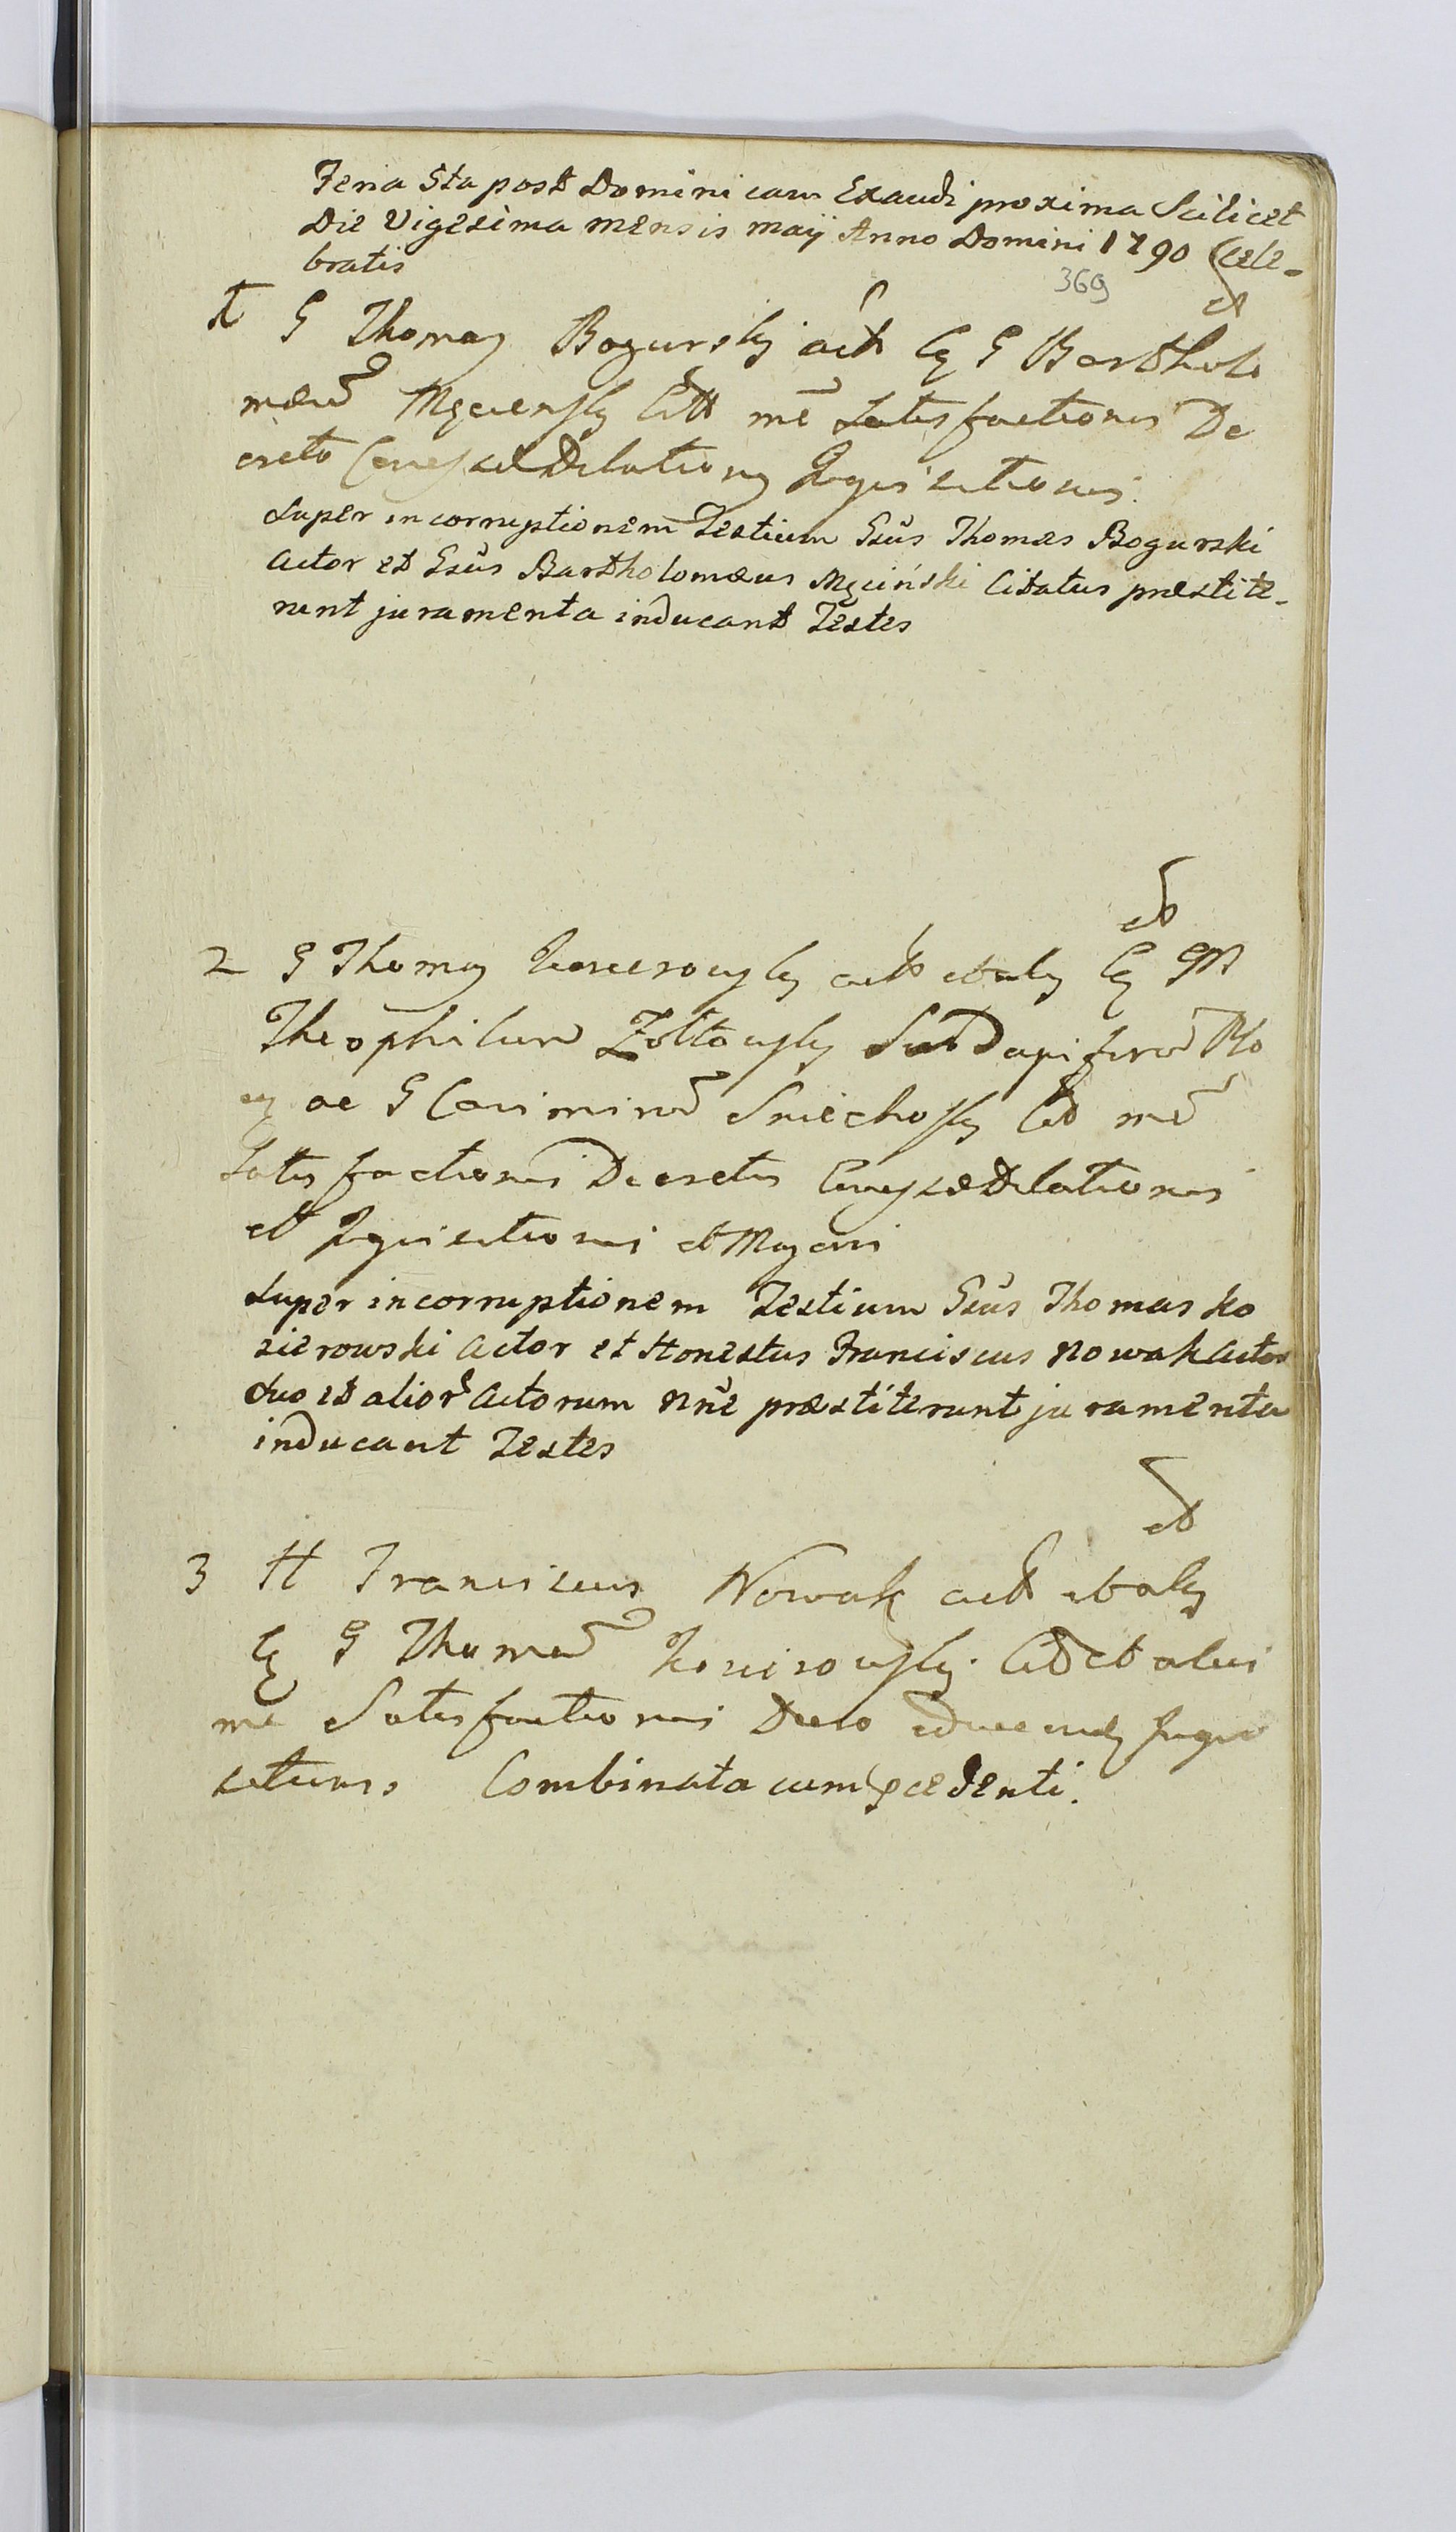 Feria 5ta post Dominicam Exaudi proxima Scilicet
Die Vigesima mensis maij Anno Domini 1790 Cele-
bratis
369
et
1 G Thomas Bogursky act Cq G Bartholo
maeum Męciensky Citt me Satisfactionis De
creto Dilationis Inquisitionis
Super incorruptionem Testium Gsus Thomas Bogurski
Actor et Gsus Bartholomaeus Męciński Citatus praestite-
runt juramenta inducant Testes
et
2 G Thomas act et alij Cq GM
Theophilum Zołtowsky SubDapiferum
ac G Casimirum Sniechosky Cit me
Satisfactionis Decretis Dilationis
et Inquisitionis et
Super incorruptionem Testium Gsus Thomas Ko
zierowski Actor et Honestus Franciscus Nowak Actor
suo et alior Actorum nne praestiterunt juramenta
inducant Testes
et
3 H Franciscus Nowak act et alij
Cq G Thomam Kozirowsky Cit et alios
me Satisfactionis Deco Inqui
sitionis Combinata cum pcedenti.